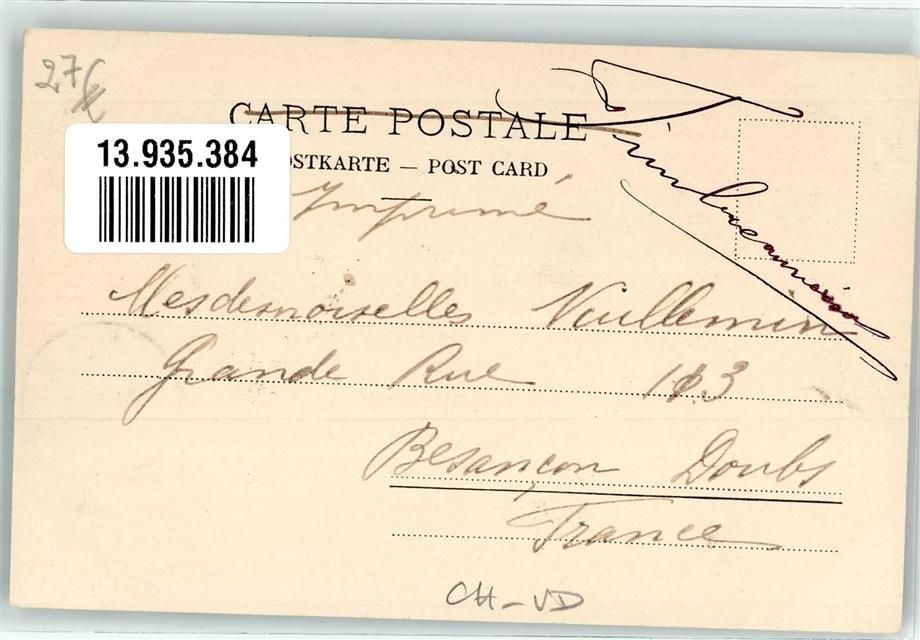 27
CARTE POSTALE
13.935.384
OSTKARTE — POST CARD
Imprimé
Mesdemoiselles Vuillemin
Grande Rue 113
Besançon Doubs
France
CH-VD